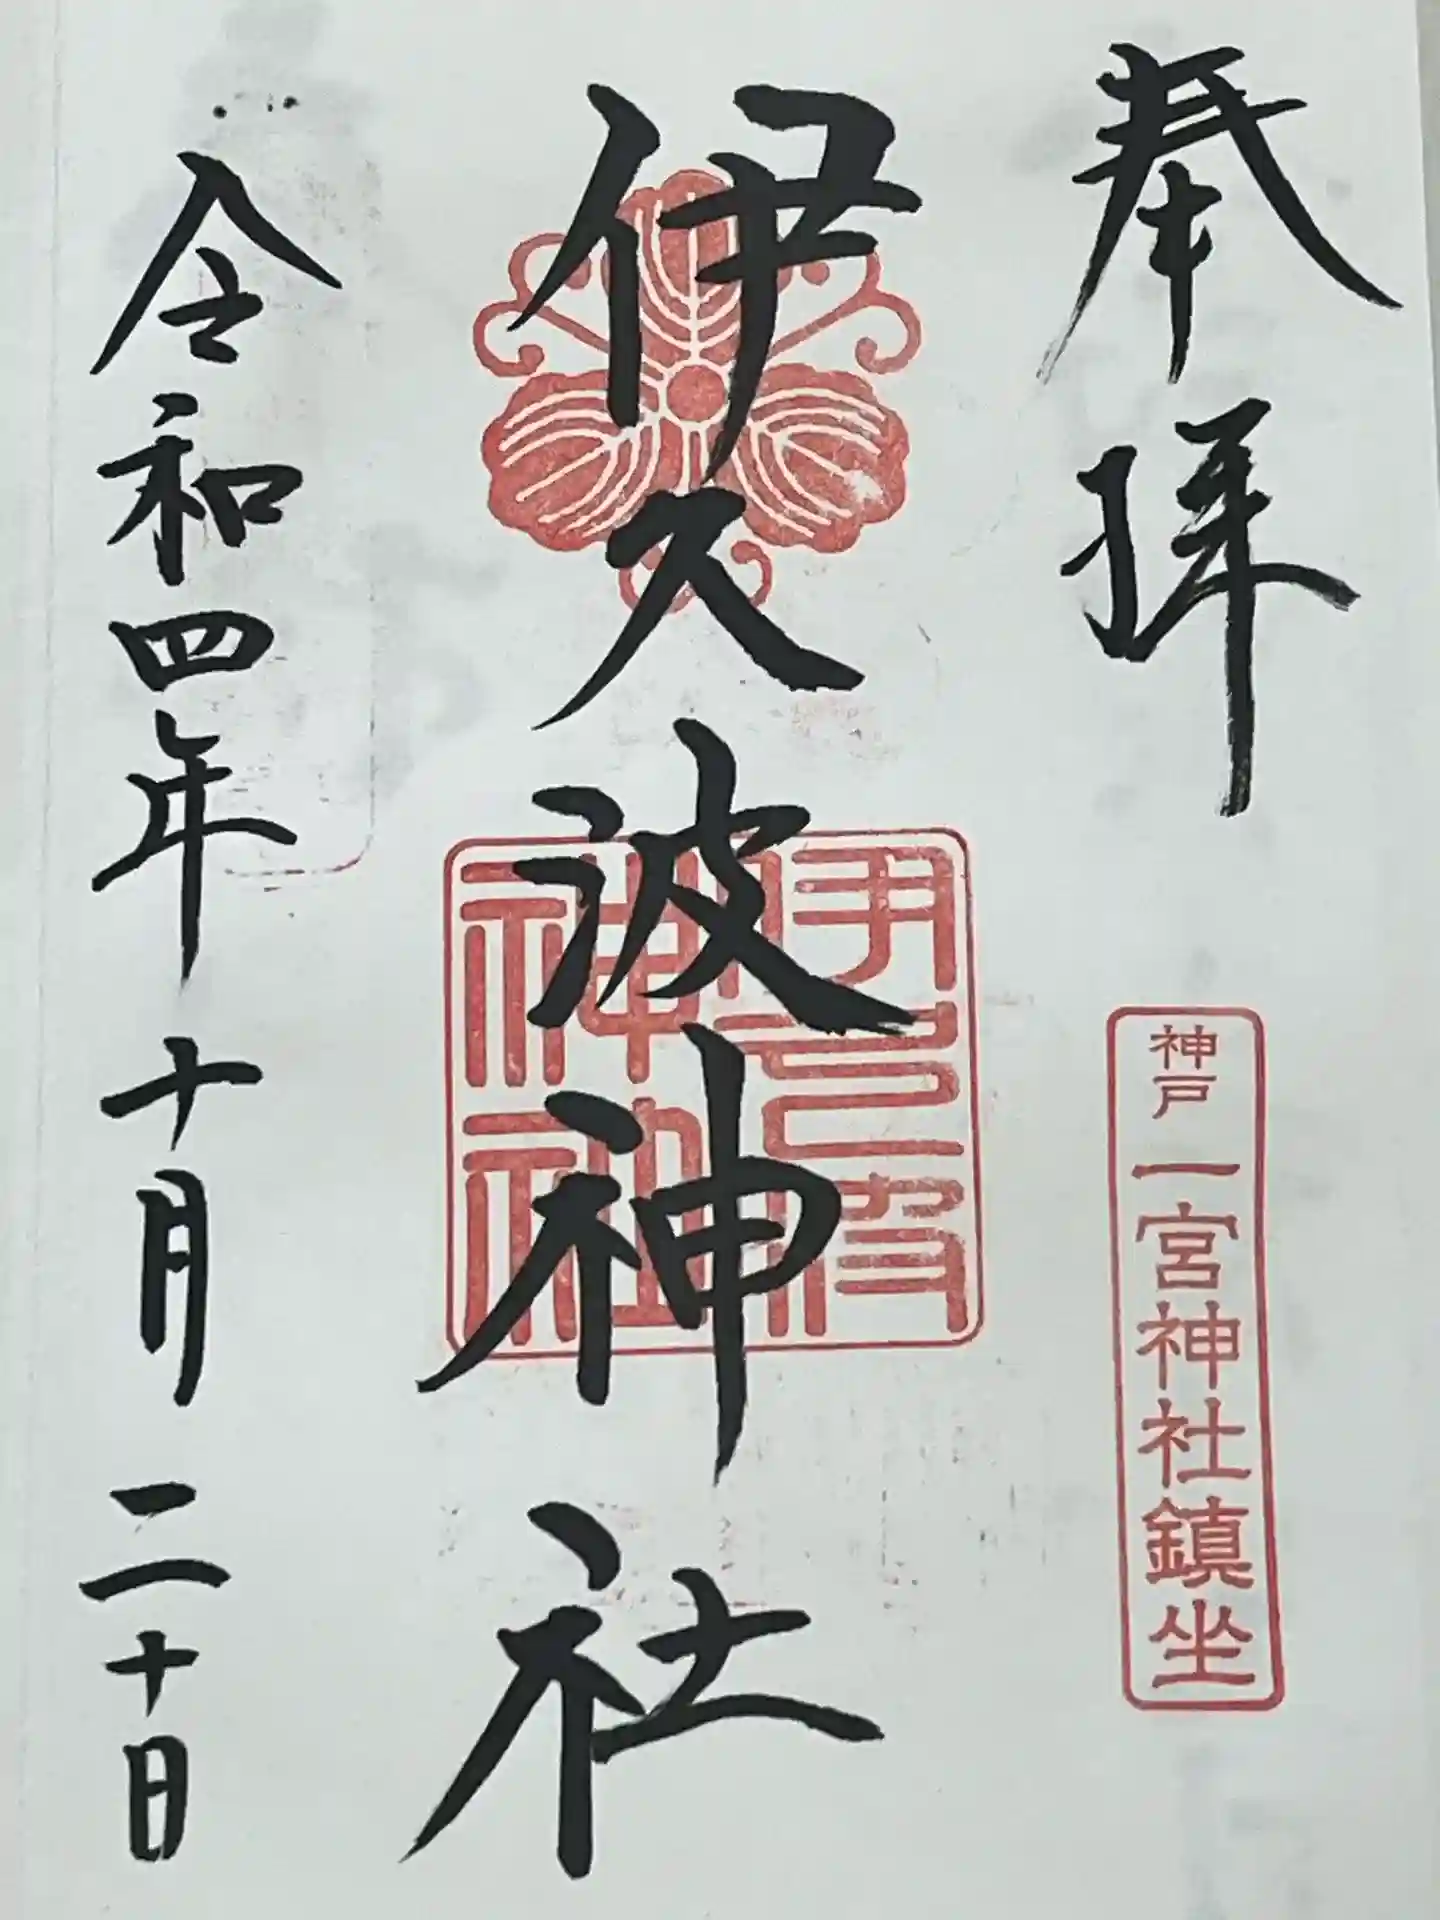 奉拝
神戸 一宮神社鎮坐
伊久波神社
伊久波
神社
令和四年十月二十日